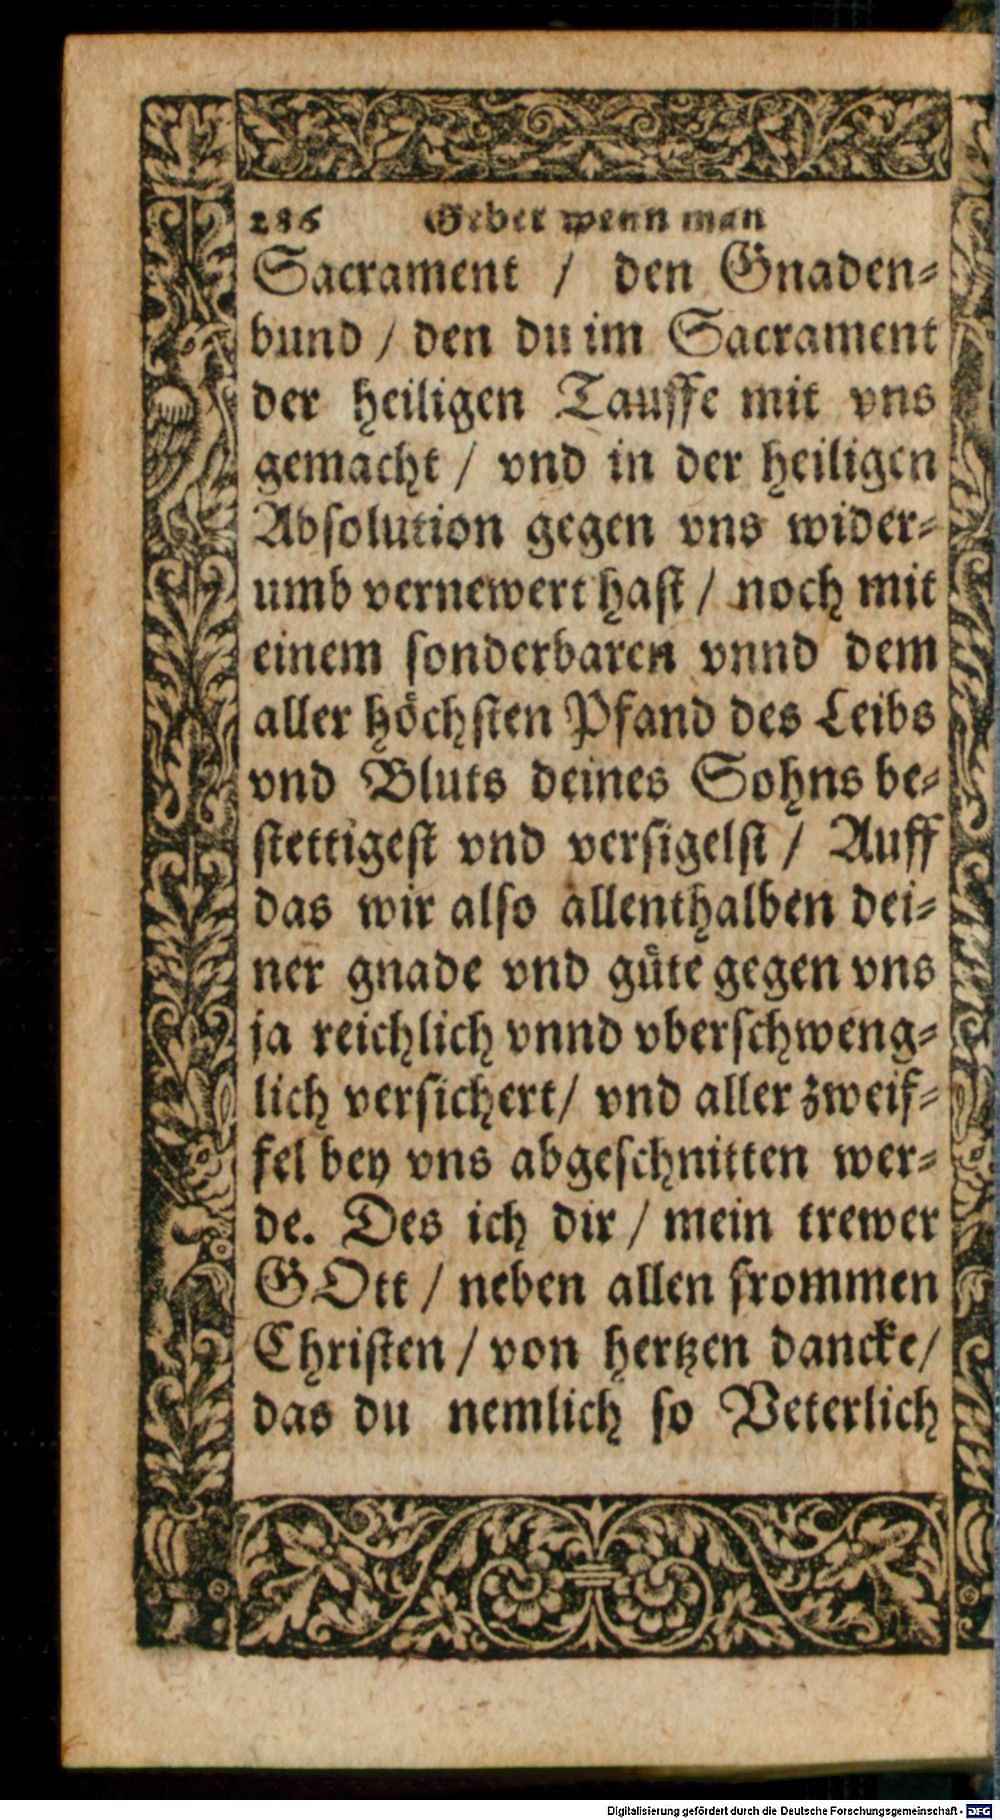 286 Gebet wenn man
Sacrament / den Gnaden-
bund / den du im Sacrament
der heiligen Tauffe mit vns
gemacht / vnd in der heiligen
Absolution gegen vns wider-
umb vernewert hast / noch mit
einem sonderbaren vnnd dem
aller höchsten Pfand des Leibs
vnd Bluts deines Sohns be-
stettigest vnd versigelst / Auff
das wir also allenthalben dei-
ner gnade vnd güte gegen vns
ja reichlich vnnd vberschweng-
lich versichert / vnd aller zweif-
fel bey vns abgeschnitten wer-
de. Des ich dir / mein trewer
GOtt / neben allen frommen
Christen / von hertzen dancke /
das du nemlich so Veterlich
Digitalisierung gefördert durch die Deutsche Forschungsgemeinschaft - DFG